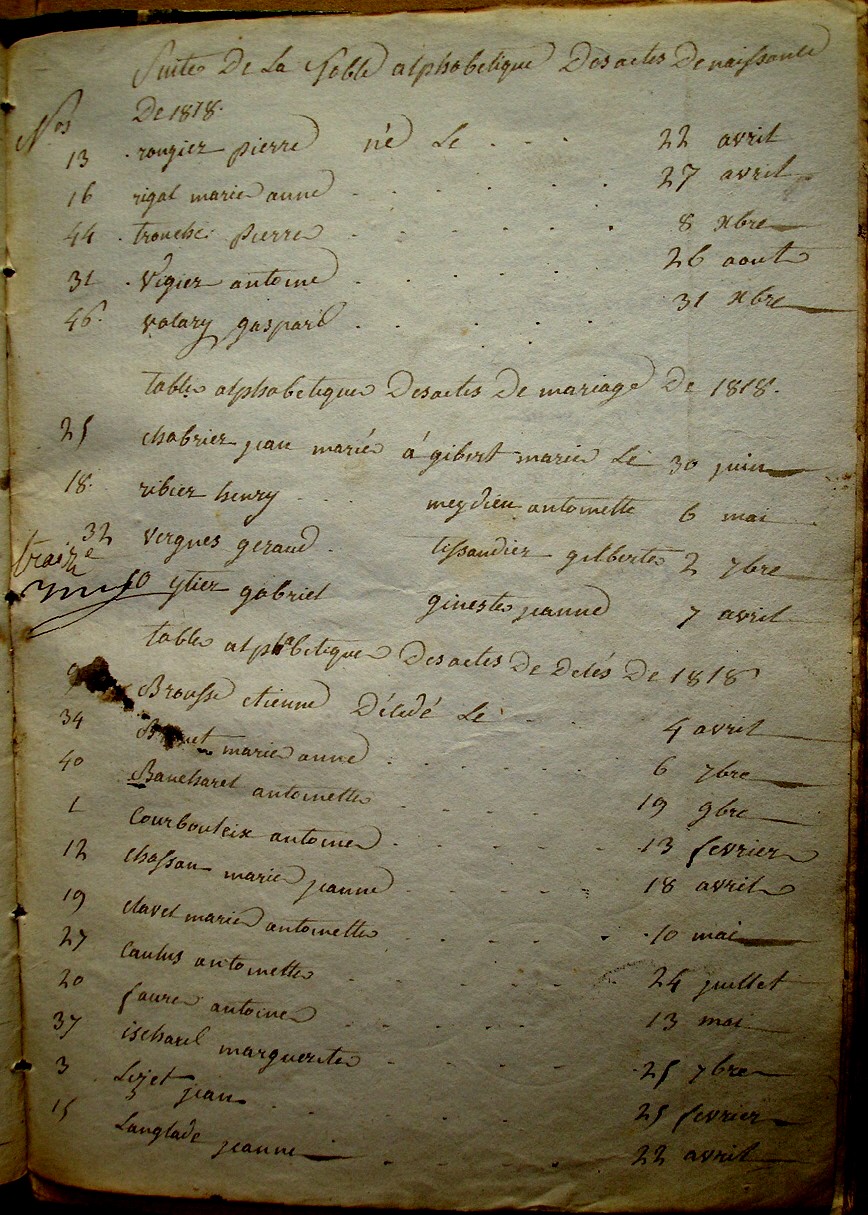 Suite De La Table alphabetique Des actes De naissance
Nos De 1818.
13 rougier pierre né Le 22 avril
16 rigal marie anne 27 avril
44 tronche pierre 8 xbre
31 Vigier antoine 26 aout
46 valary gaspard 31 xbre
table alphabetique Des actes De mariage De 1818.
25 chabrier jean marié à gibert marie Le 30 juin
18 ribier henry meydieu antoinette 6 mai
32 vergnes geraud tissandier gilberte 2 7bre
ytier gabriel gineste jeanne 7 avril
table alphabetique Des actes De Décés De 1818
9 Brousse etienne Décédé Le 4 avril
34 marie anne 6 7bre
40 Bancharel antoinette 19 9bre
1 Courbouleix antoine 13 fevrier
12 chassan marie jeanne 18 avril
19 clavet marie antoinette 10 mai
27 Caulus antoinette 24 juillet
20 faure antoine 13 mai
37 ischard marguerite 25 7bre
3 Lizet jean 25 fevrier
15 Langlade jeanne 22 avril